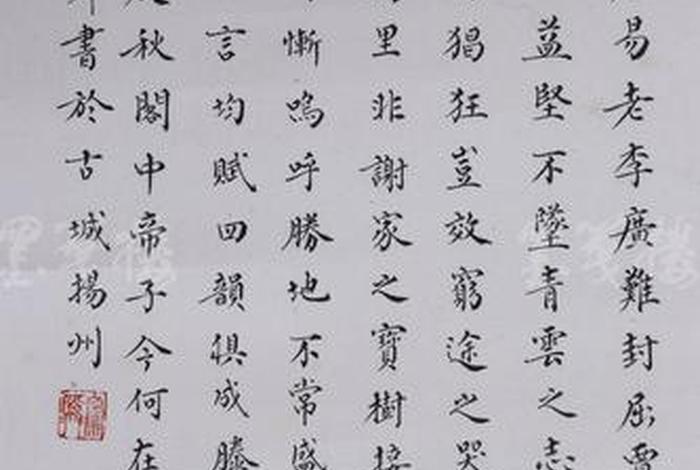 易老李廣難封屈
益堅不墜青雲之志
猖狂豈效窮途之哭
里非謝家之寶樹接
慚嗚呼勝地不常盛
言均賦四韻俱成滕
秋閣中帝子今何在
書於古城揚州